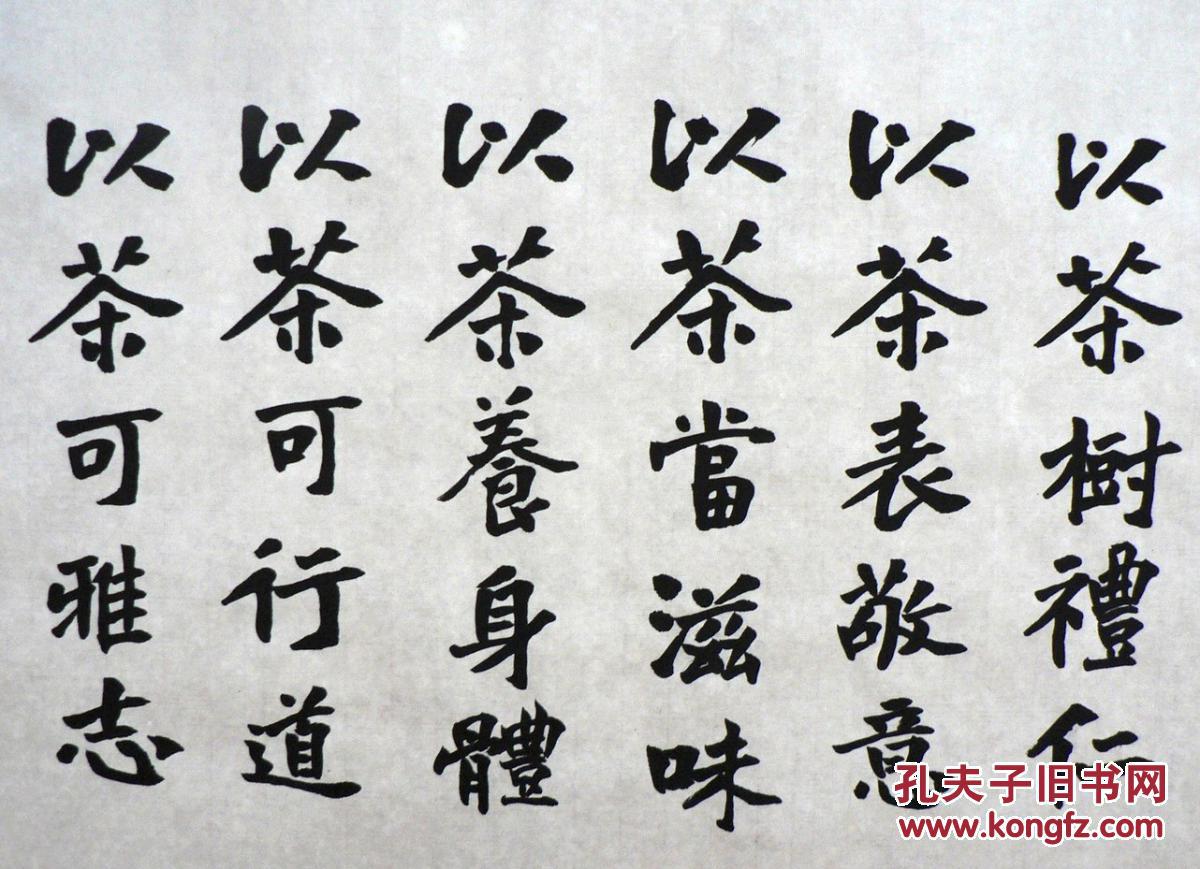 以茶樹禮仁
以茶表敬意
以茶當滋味
以茶養身體
以茶可行道
以茶可雅志
孔夫子旧书网
www.kongfz.com